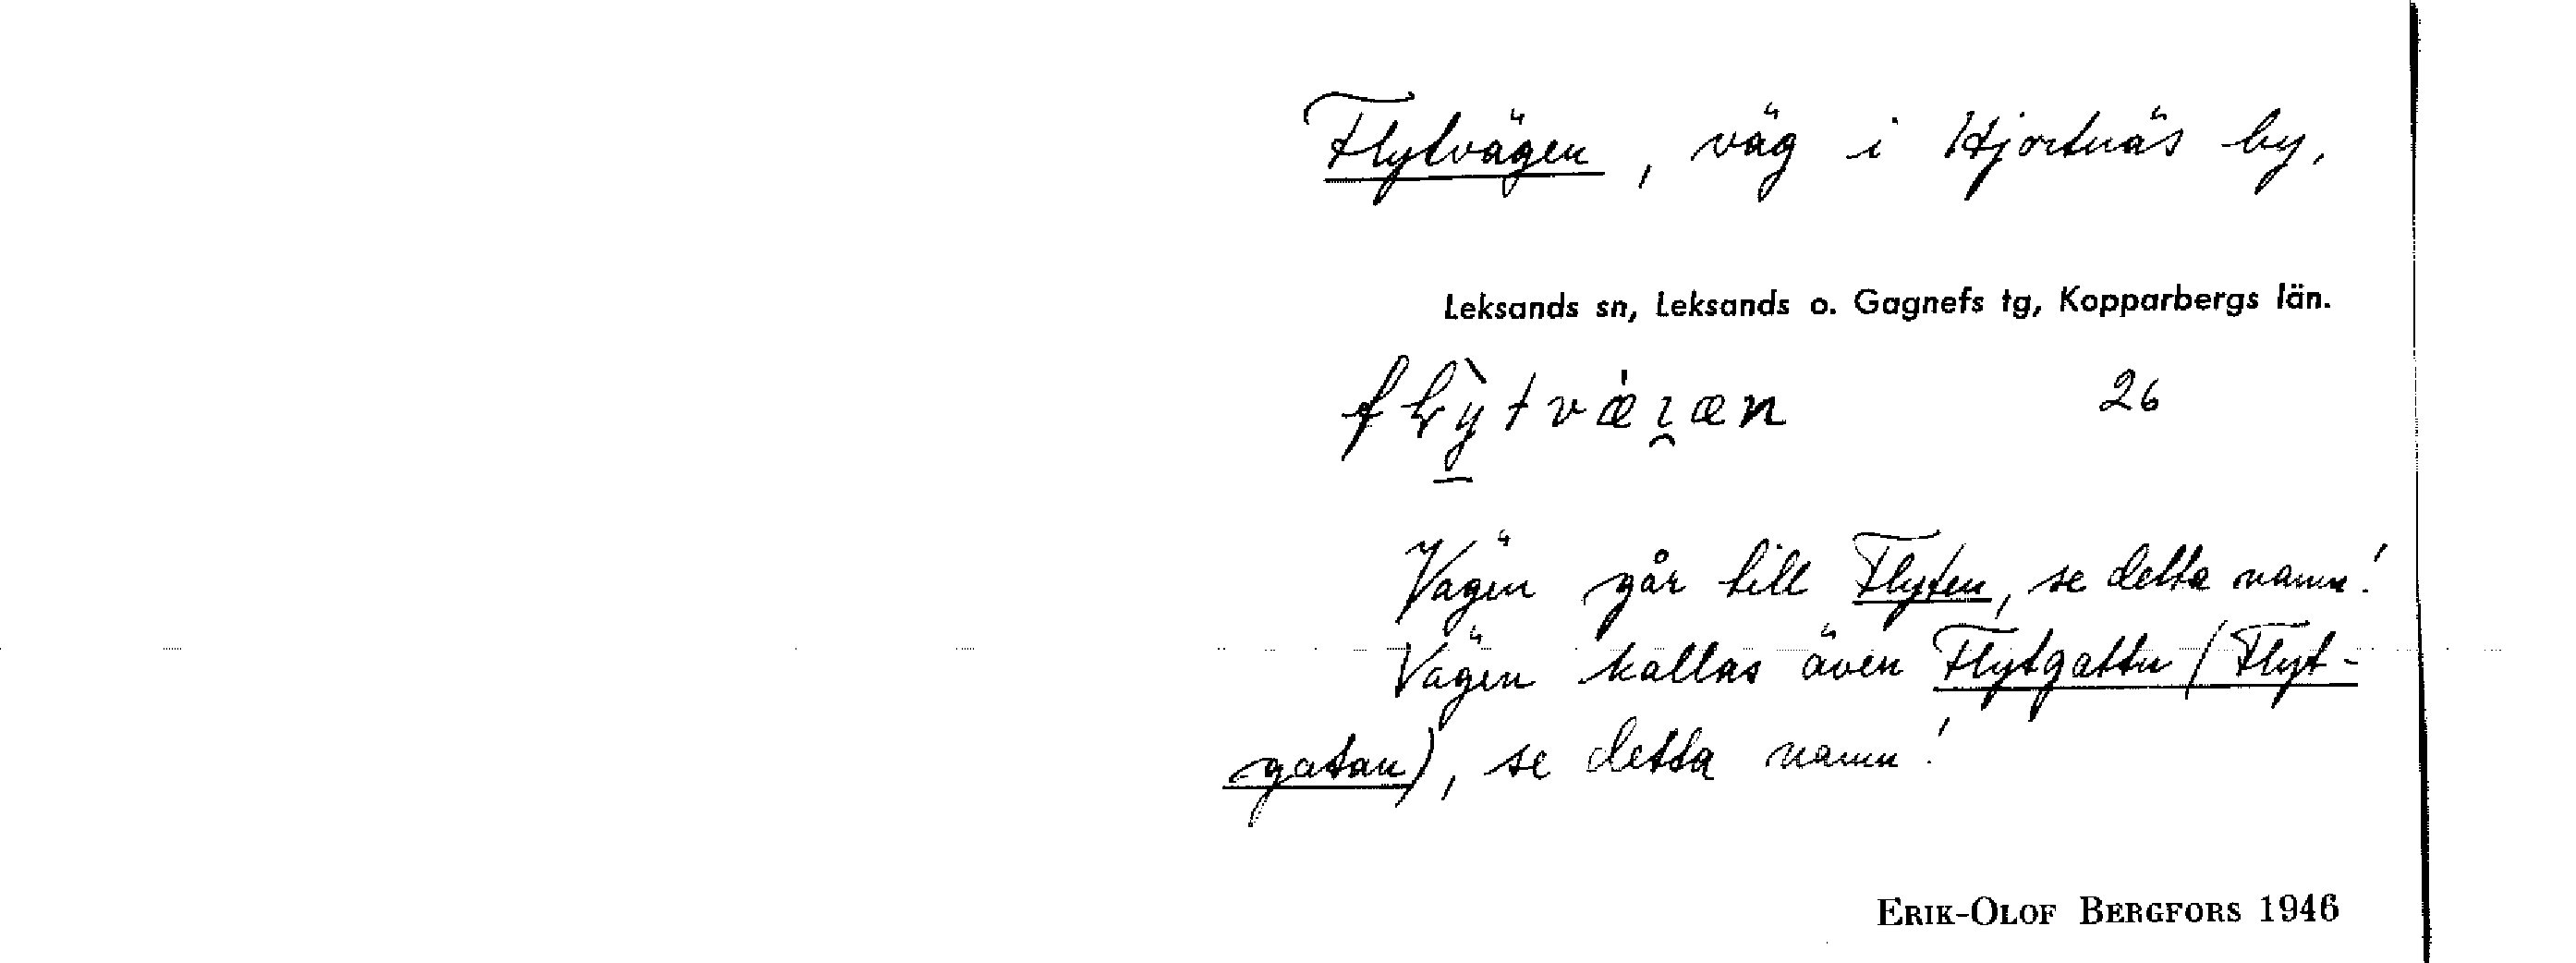 Flytvägen, väg i Hjortnäs by,
Leksands sn, Leksands o. Gagnefs tg, Kopparbergs län.
26
Vägen går till Flyten, se detta namn!
Vägen kallas även Flytgattu (Flyt-
gatan), se detta namn!
ERIK-OLOF BERGFORS 1946